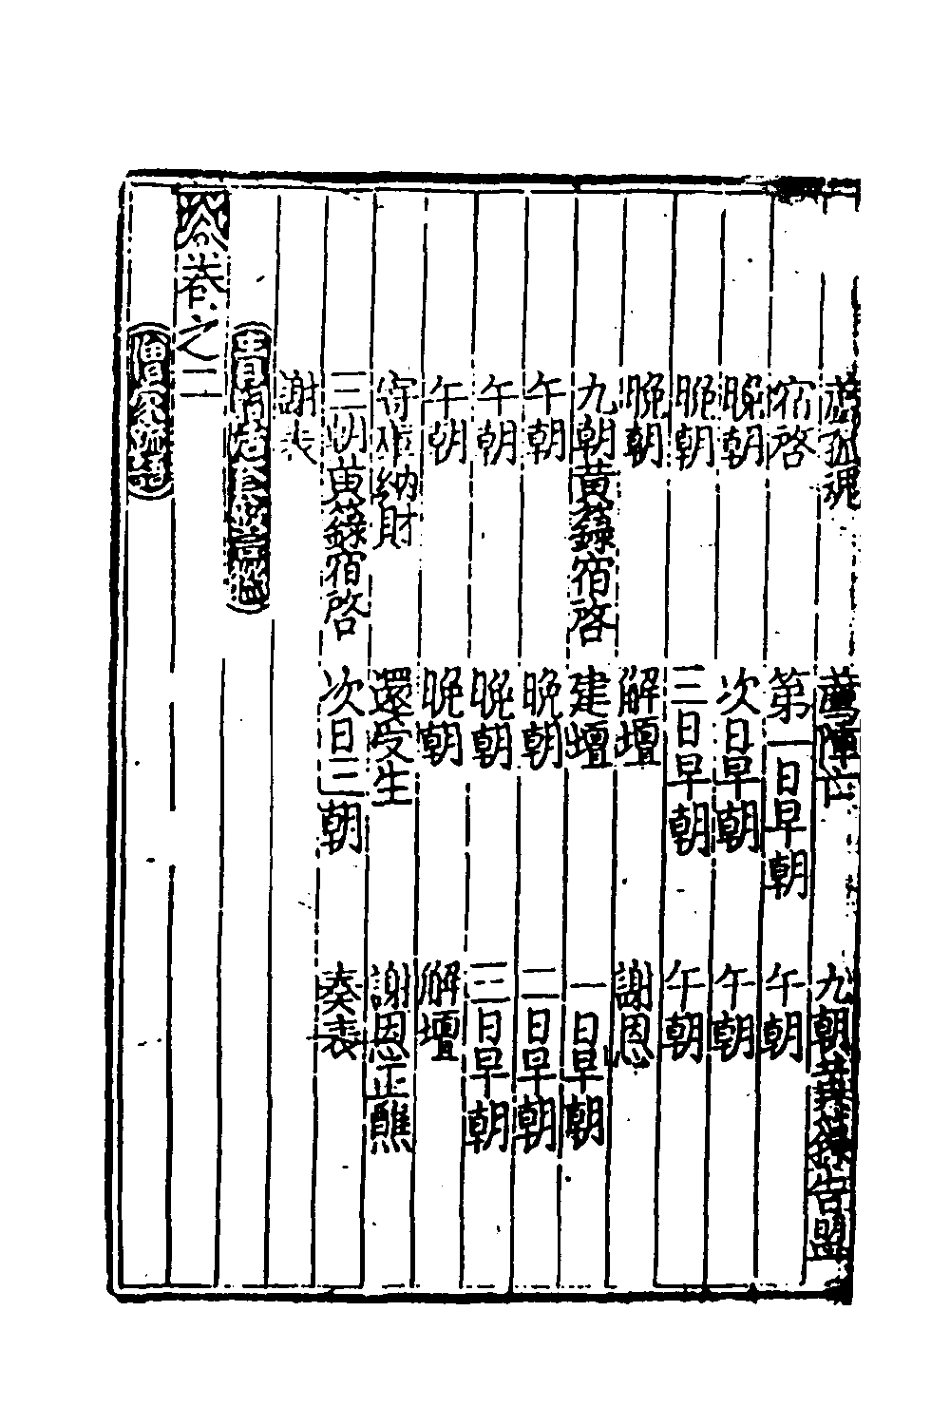 薦孤魂 薦陣亡 九朝黃籙告盟
宿啓 第一日早朝 午朝
晚朝 次日早朝 午朝
晚朝 三日早朝 午朝
晚朝 解壇 謝恩
九朝黃籙宿啓 建壇 一日早朝
午朝 晚朝 二日早朝
午朝 晚朝 三日早朝
午朝 晚朝 解壇
寄庫納財 還受生 謝恩正醮
三朝黃籙宿啓 次日三朝 奏表
謝表
卷之二
僧家疏語